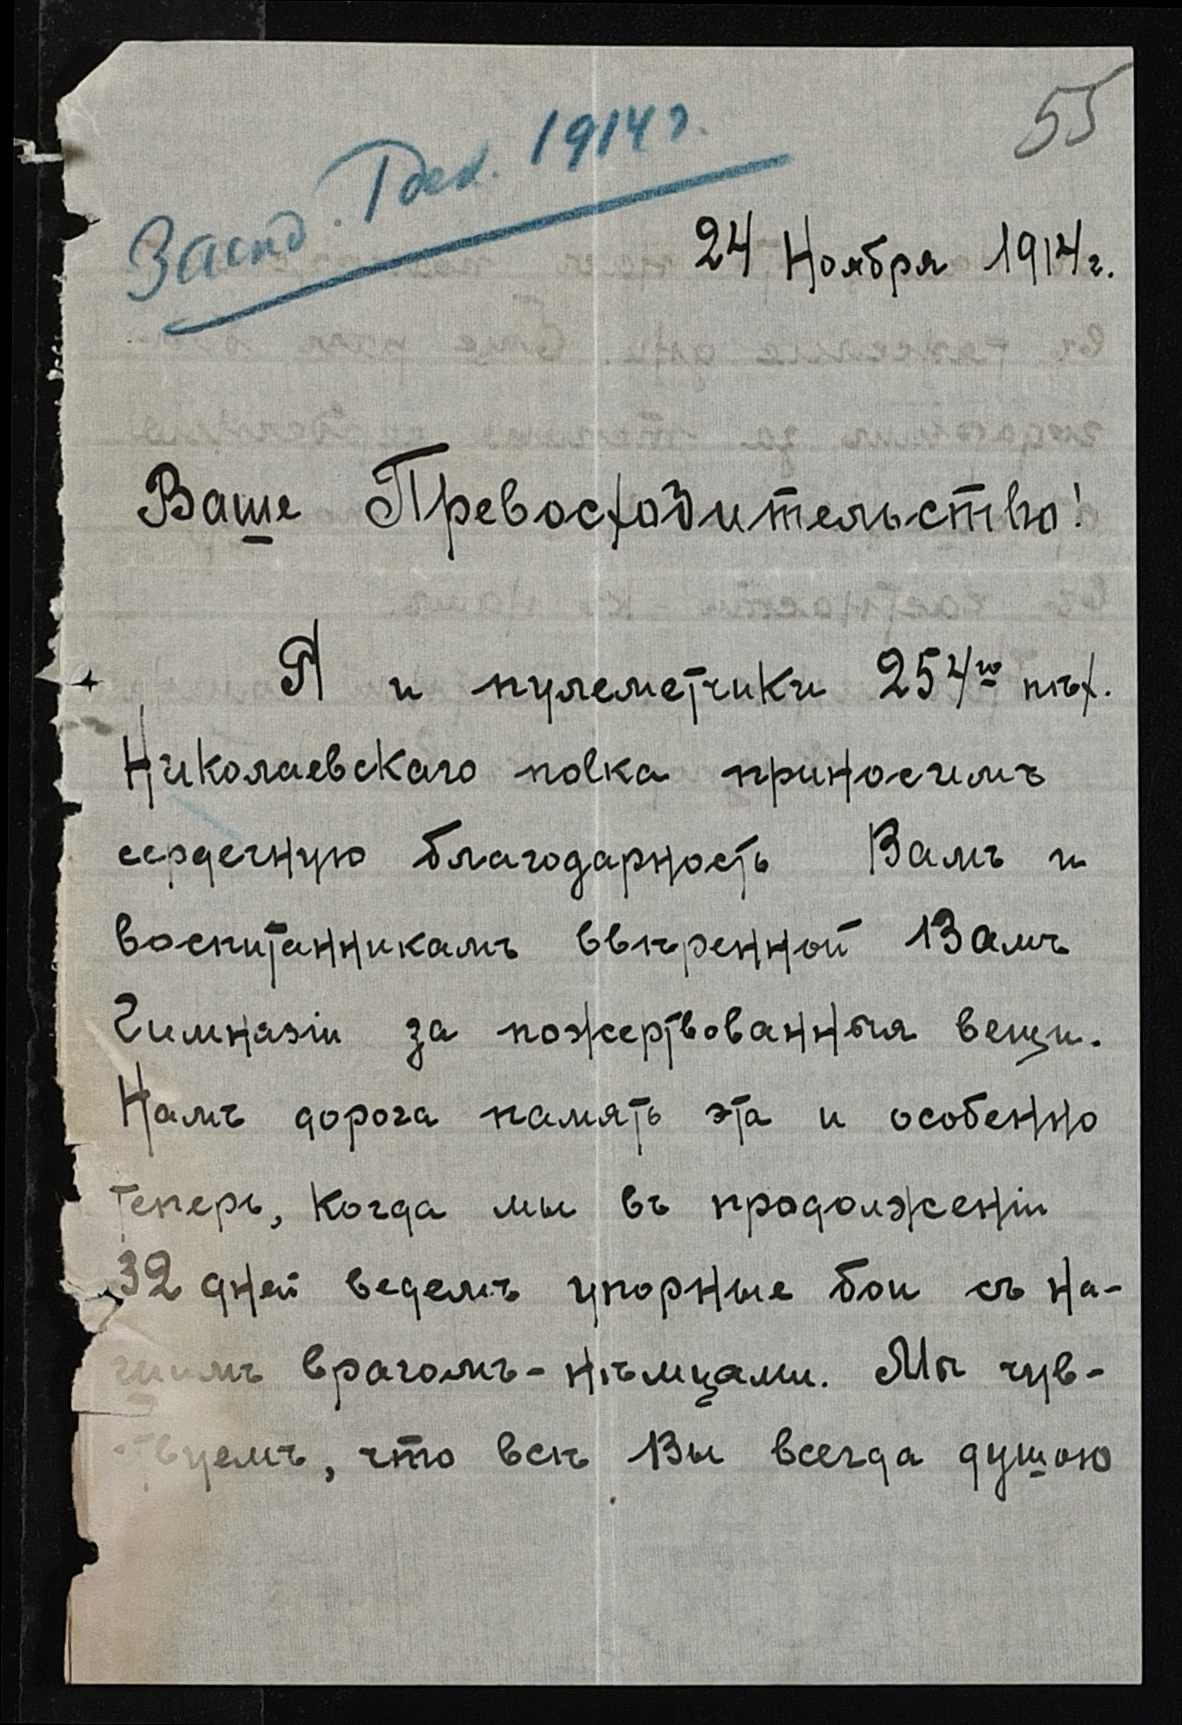 55
Засѣд. 1 дек. 1914 г.
24 Ноября 1914 г.
Ваше Превосходительство!
Я и пулеметчики 254го пѣх.
Николаевскаго полка приносимъ
сердечную благодарность Вамъ и
воспитанникамъ ввѣренной Вамъ
Гимназіи за пожертвованныя вещи.
Намъ дорога память эта и особенно
теперь, когда мы въ продолженіи
32 дней ведемъ упорные бои съ на-
шимъ врагомъ-нѣмцами. Мы чув-
ствуемъ, что всѣ Вы всегда душою